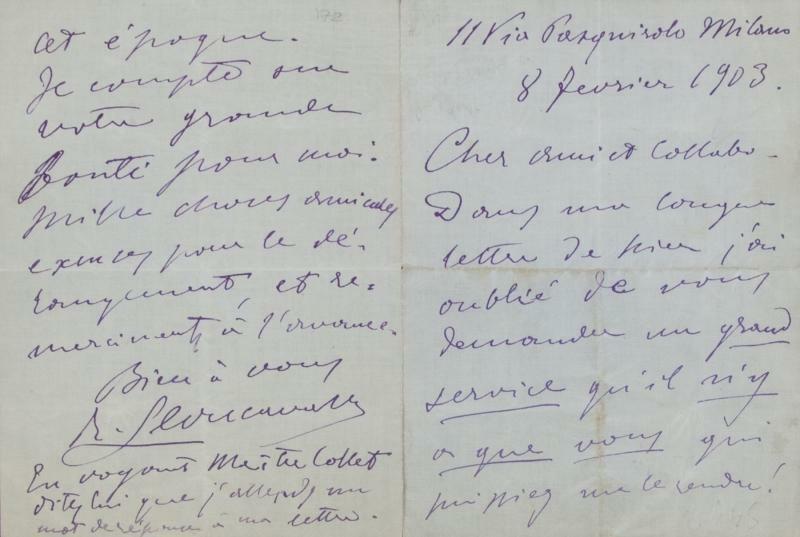 11 Via Pasquirolo Milano
8 fevrier 1903.
Cher ami et Collabo-
Dans ma longue
lettre de hier j'ai
oublié de vous
demander un grand
service qu'il n'y
a que vous qui
puissiez me le rendre!
cet époque.
Je compte sur
votre grande
bonté pour moi.
Mille choses amicales
excuses pour le dé-
rangement et re-
merciments à l'avance.
Bien à vous
R. Leoncavallo
En voyant Maitre Collet
dites lui que j'attends un
mot de réponse à ma lettre.